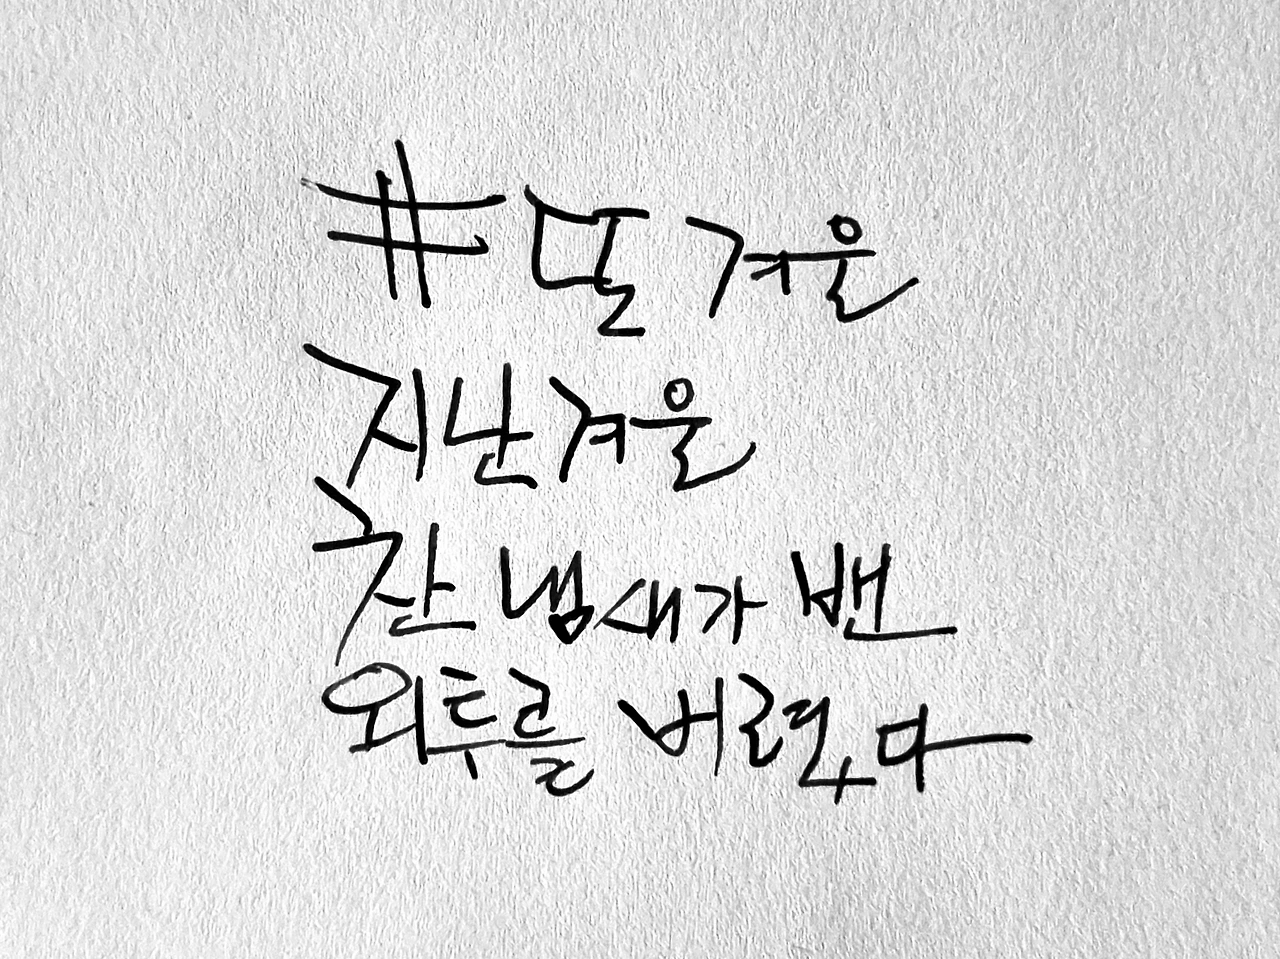 # 겨울
지난겨울
냄새가 밴
외투를 버렸다